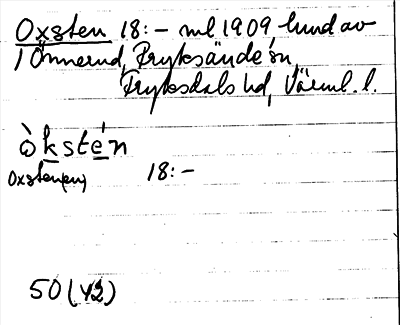 Oxsten 18:- ml 1909, lund av
1 Önnerud, Fryksände sn,
Fryksdals hd, Värml. l.
òkstén
Oxsten(en) 18:-
50 (42)